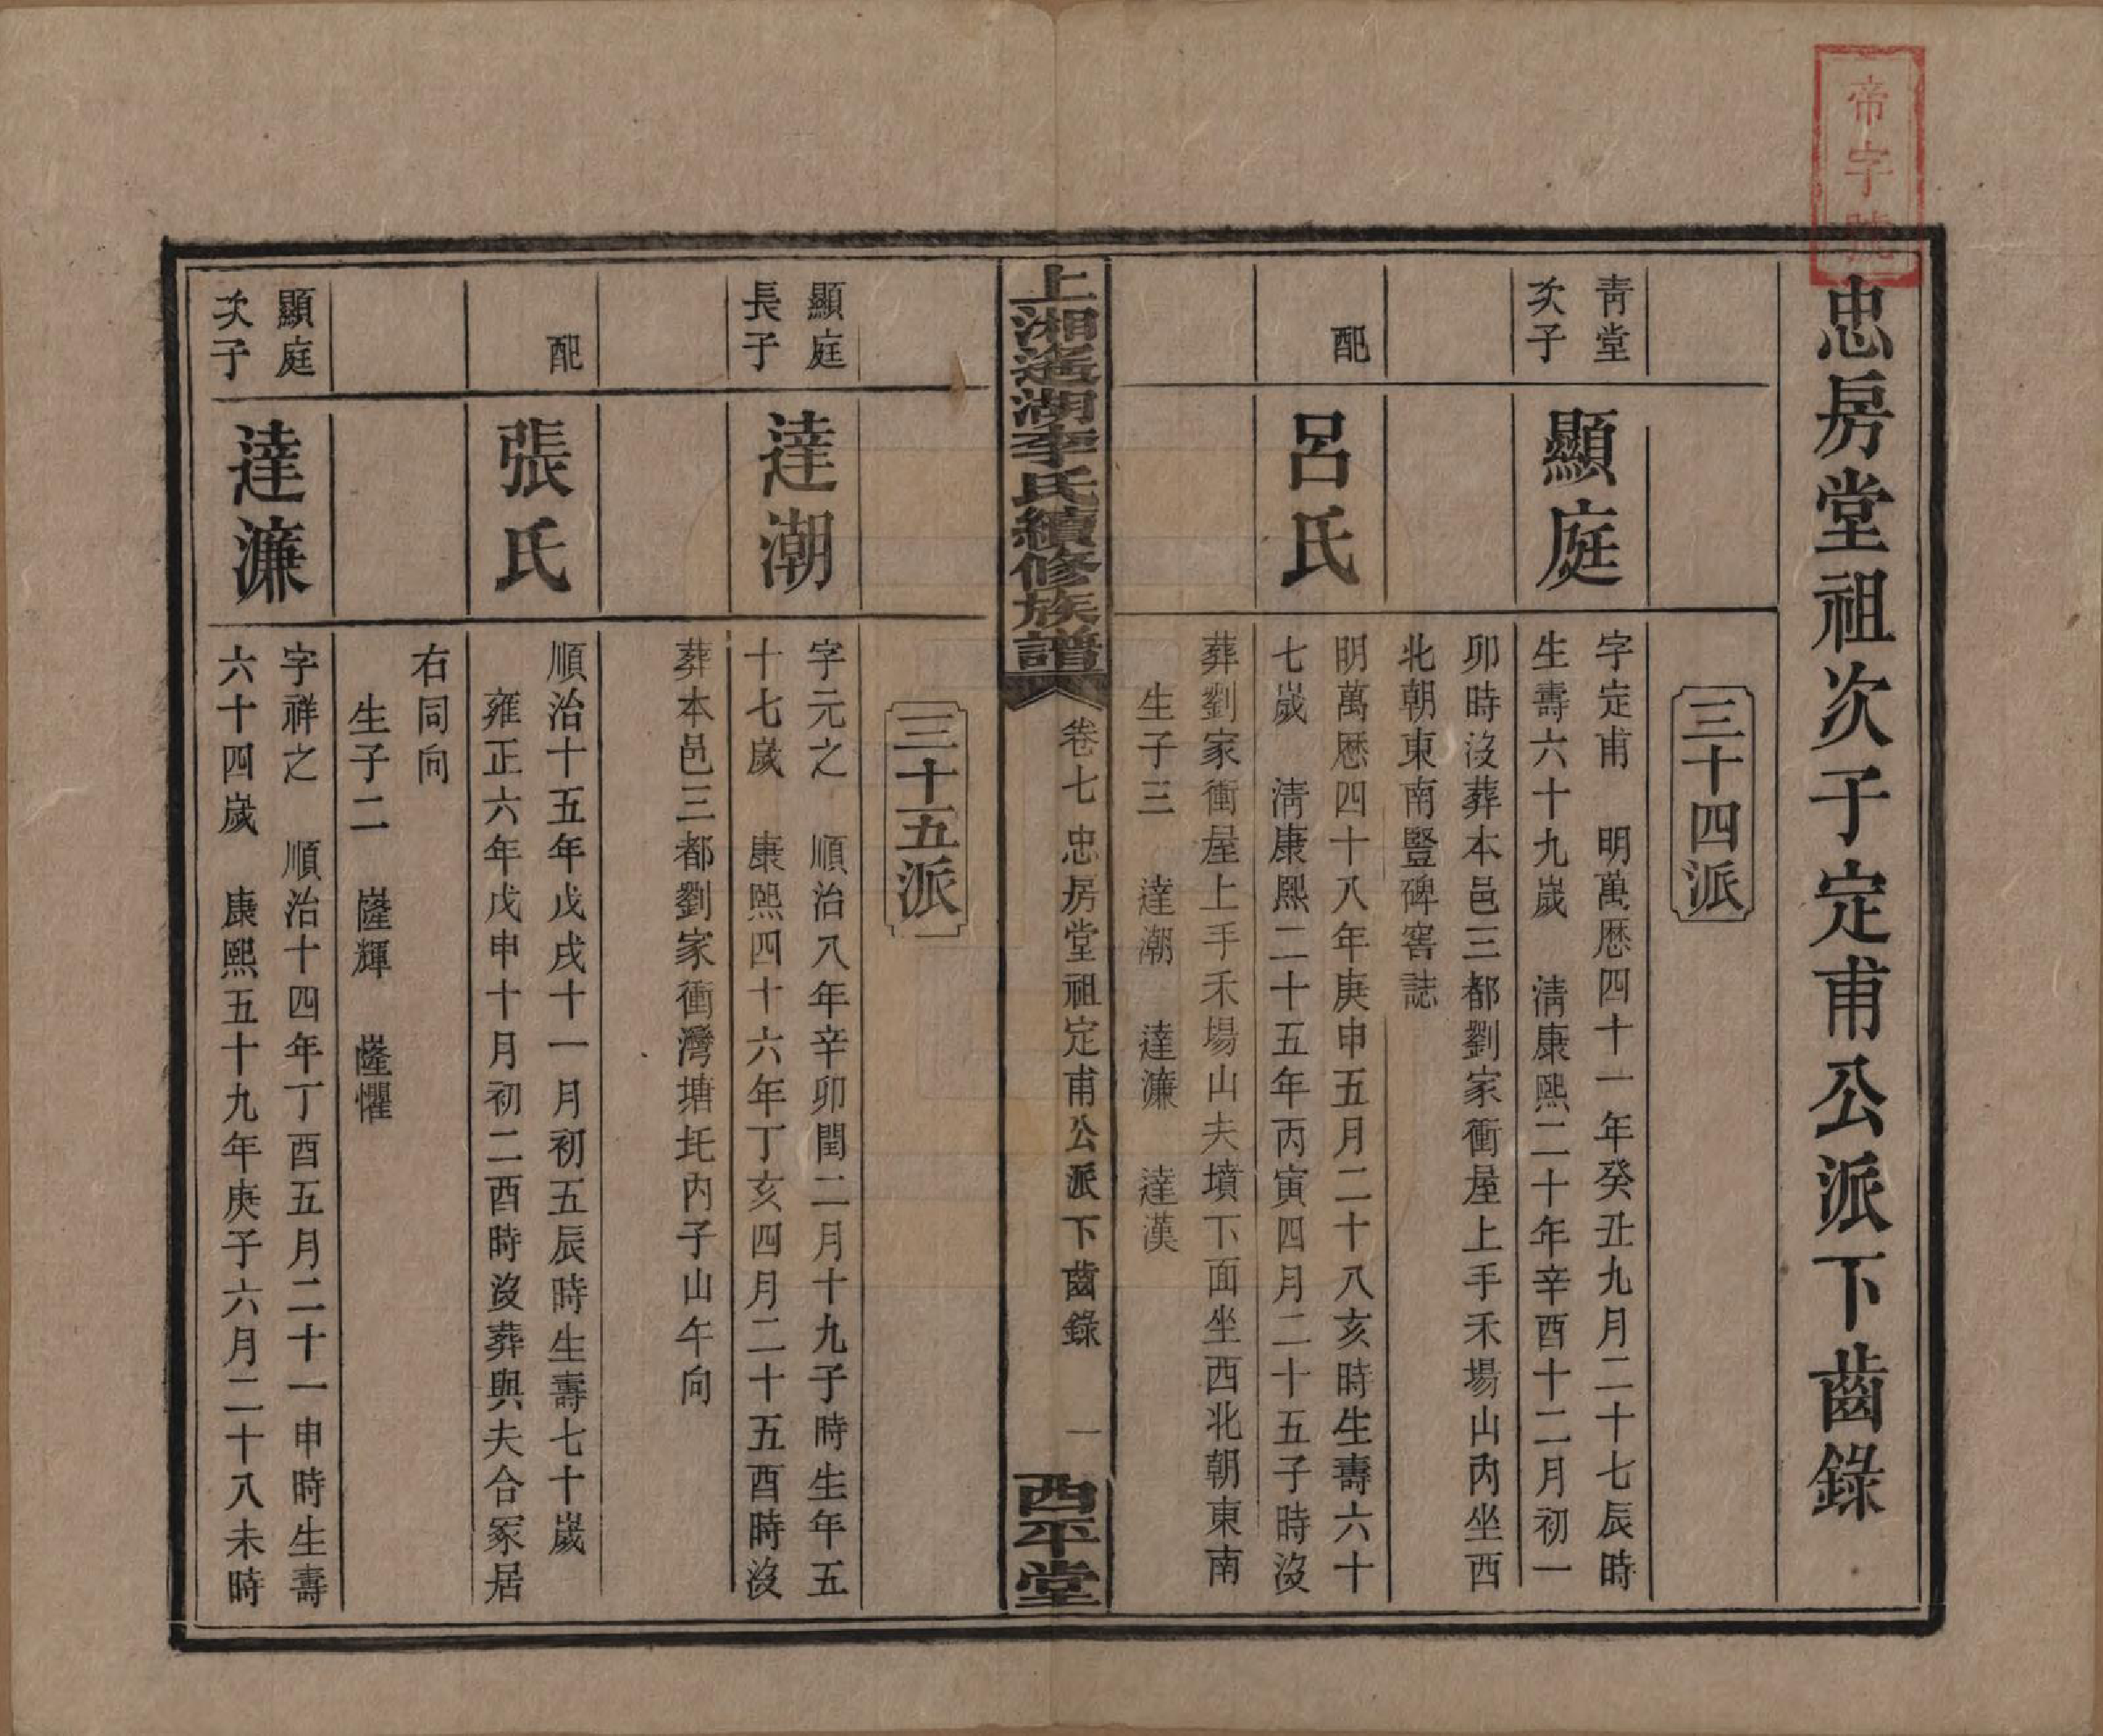 帝字號
忠房堂祖次子定甫公派下齒錄
三十四派
青堂
次子
顯庭
字定甫　明萬厯四十一年癸丑九月二十七辰時
生壽六十九歲　清康熙二十年辛酉十二月初一
卯時沒葬本邑三都劉家衝屋上手禾場山內坐西
北朝東南豎碑窖誌
配
呂氏
明萬厯四十八年庚申五月二十八亥時生壽六十
七歲　清康熙二十五年丙寅四月二十五子時沒
葬劉家衝屋上手禾場山夫墳下面坐西北朝東南
生子三　達潮　達濂　達漢
上湘遙湖李氏續修族譜
卷七　忠房堂祖定甫公派下齒錄　一
西平堂
三十五派
顯庭
長子
達潮
字元之　順治八年辛卯閏二月十九子時生年五
十七歲　康熙四十六年丁亥四月二十五酉時沒
葬本邑三都劉家衝灣塘坉內子山午向
配
張氏
順治十五年戊戌十一月初五辰時生壽七十歲
雍正六年戊申十月初二酉時沒葬與夫合冢居
右同向
生子二　隆輝　隆懼
顯庭
次子
達濂
字祥之　順治十四年丁酉五月二十一申時生壽
六十四歲　康熙五十九年庚子六月二十八未時